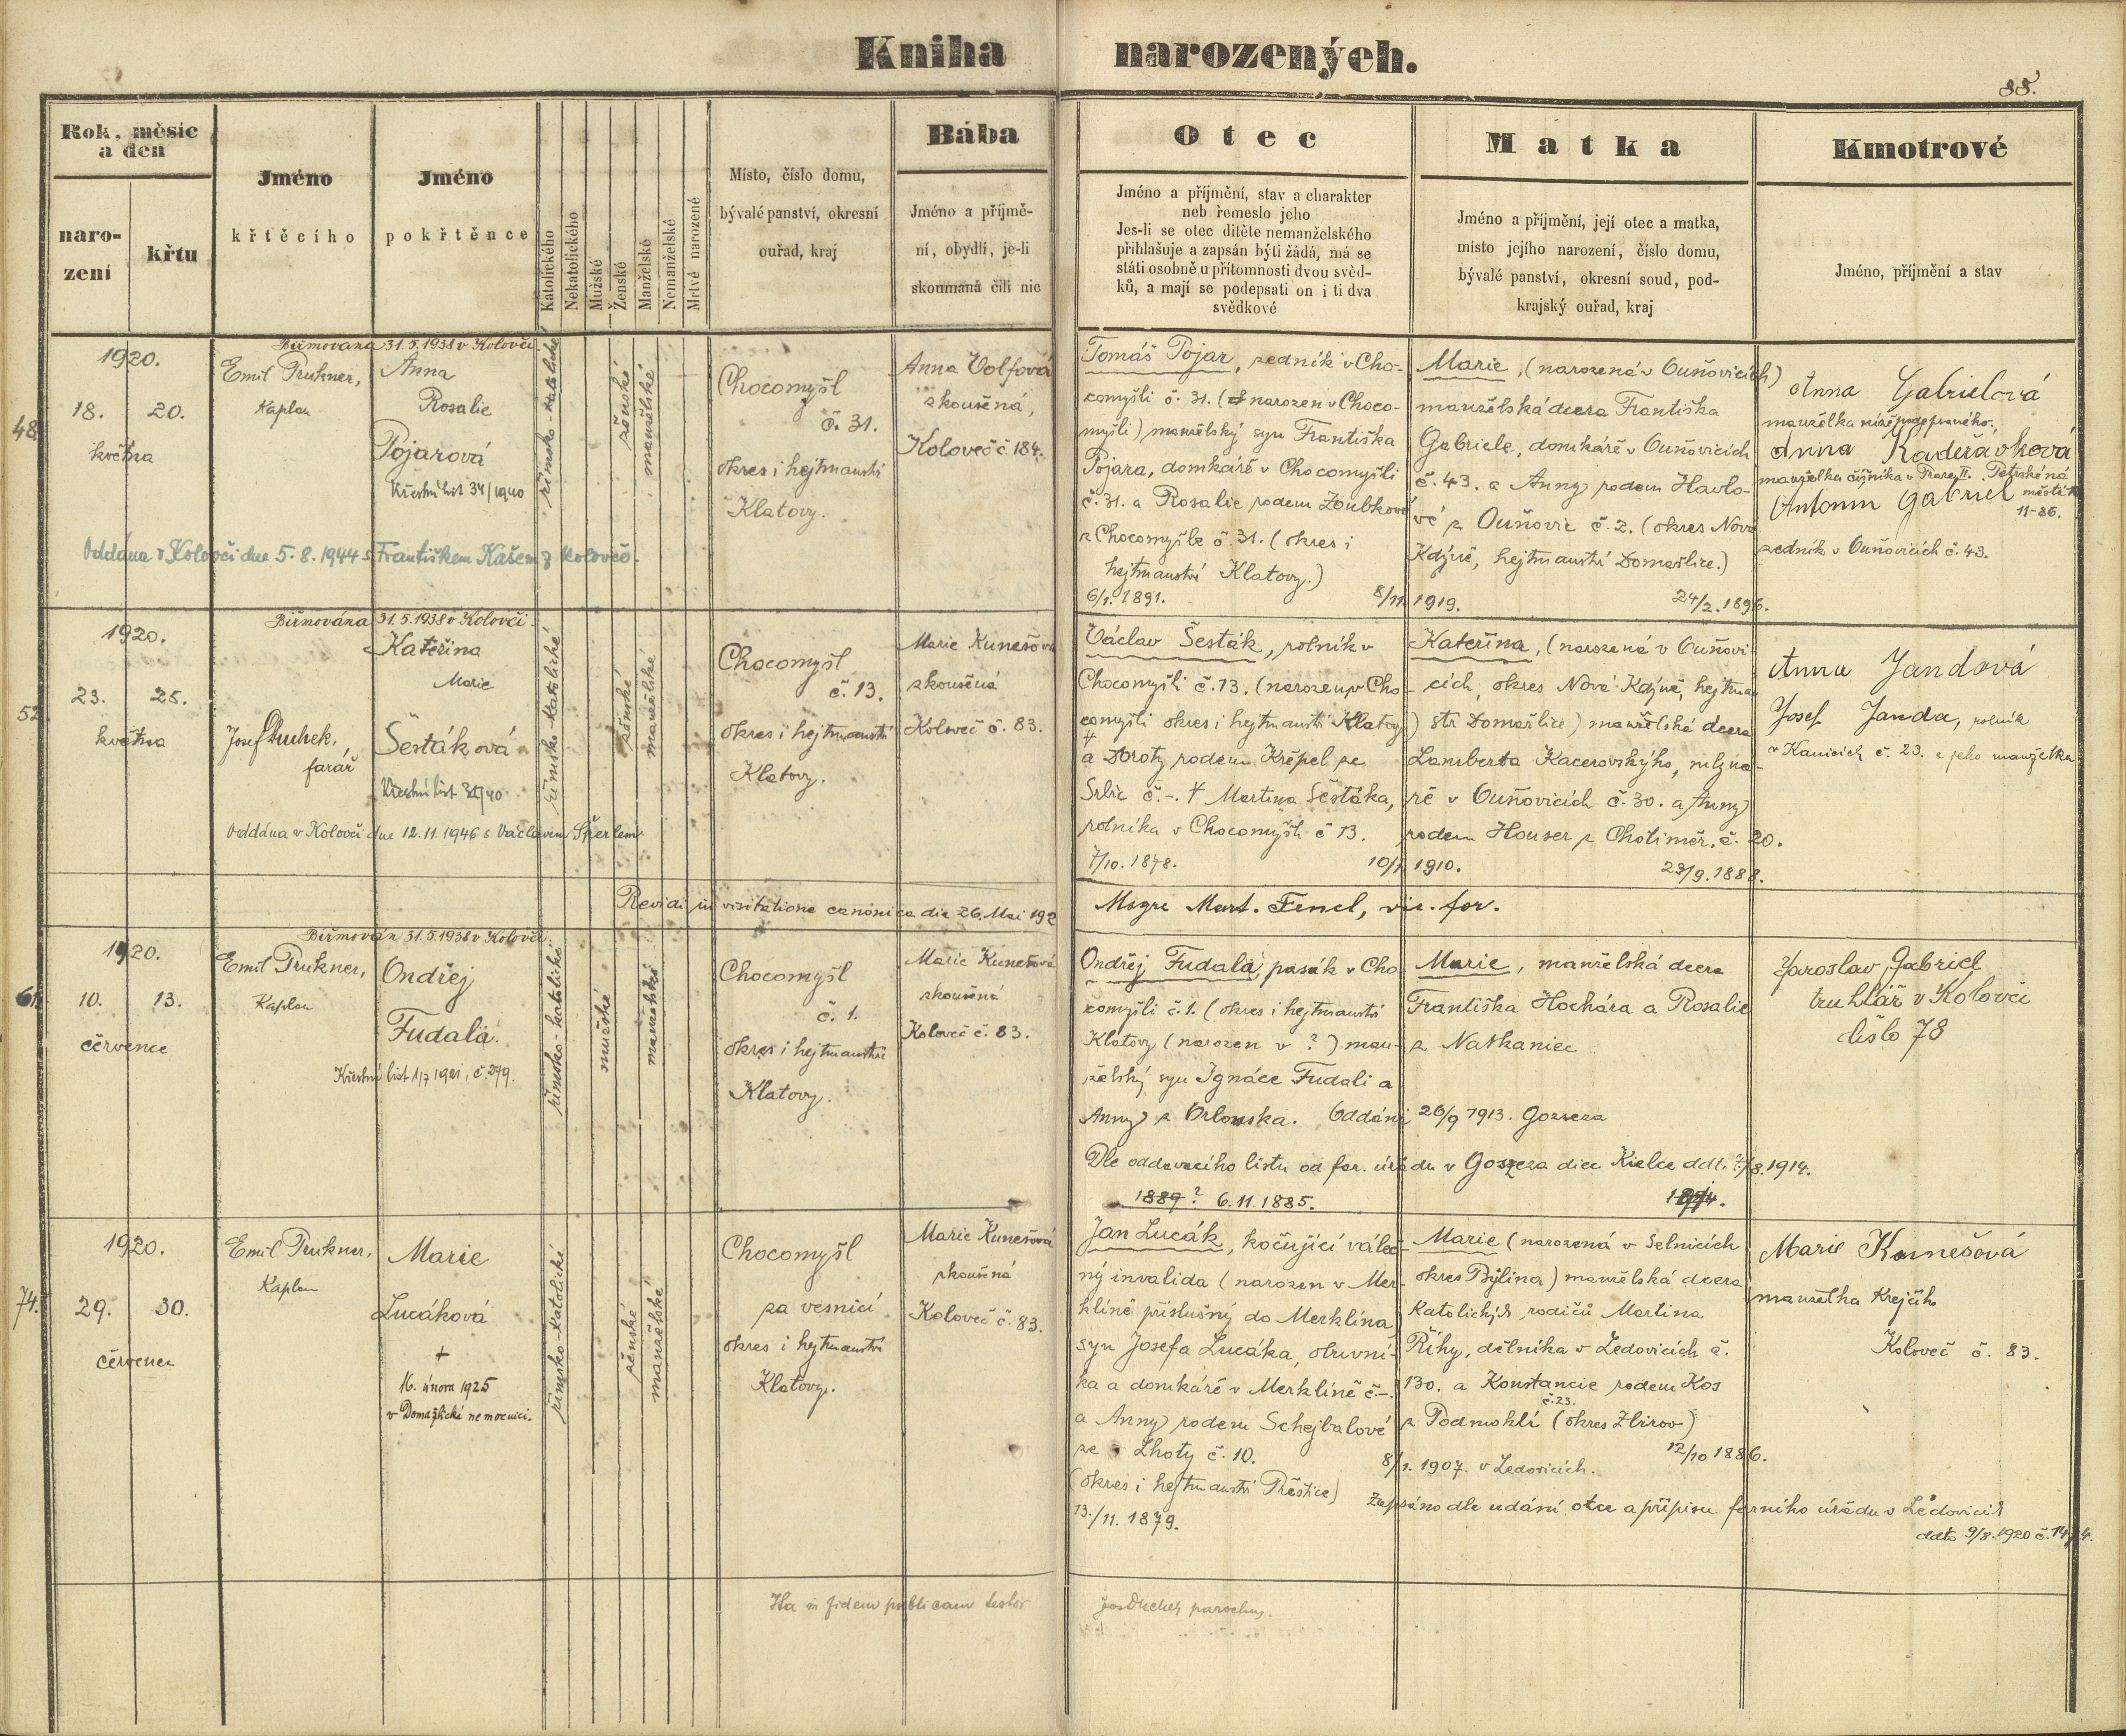 Kniha narozených.
88.
Rok, měsíc
a den
naro-
zení
křtu
Jméno
křtěcího
Jméno
pokřtěnce
Katolického
Nekatolického
Mužské
Ženské
Manželské
Nemanželské
Mrtvě narozené
Místo, číslo domu,
bývalé panství, okresní
ouřad, kraj
Bába
Jméno a příjmě-
ní, obydlí, je-li
skoumaná čili nic
Otec
Jméno a příjmění, stav a charakter
neb řemeslo jeho
Jes-li se otec dítěte nemanželského
přihlašuje a zapsán býti žádá, má se
státi osobně u přítomnosti dvou svěd-
ků, a mají se podepsati on i ti dva
svědkové
Matka
Jméno a příjmění, její otec a matka,
místo jejího narození, číslo domu,
bývalé panství, okresní soud, pod-
krajský ouřad, kraj
Kmotrové
Jméno, příjmění a stav
48.
1920.
18. 20.
května
Biřmována 31.5.1938 v Kolovči
Emil Prukner,
Kaplan
Anna
Rosalie
Pojarová
Křestní list 34/1940
Oddána v Kolovči dne 5.8.1944 s Františkem Kašem z Kolovče.
římsko-katolické
ženské
manželské
Chocomyšl
č. 31.
okres i hejtmanství
Klatovy.
Anna Volfová
zkoušená,
Koloveč č. 184.
Tomáš Pojar, zedník v Cho-
comyšli č. 31. (narozen v Choco-
myšli) manželský syn Františka
Pojara, domkáře v Chocomyšli
č. 31. a Rosalie rodem Zoubkové
z Chocomyšle č. 31. (okres i
hejtmanství Klatovy.)
6/1. 1891. 8/11 1919.
Marie, (narozená v Ouňovicích)
manželská dcera Františka
Gabriele, domkáře v Ouňovicích
č. 43. a Anny rodem Havlo-
vé z Ouňovic č. 2. (okres Nová
Kdýně, hejtmanství Domažlice.)
24/2. 1896.
Anna Gabrielová
manželka níže podepsaného.
Anna Kadeřávková
manželka číšníka v Praze II.
Antonin Gabriel
11-86.
zedník v Ouňovicích č. 43.
52
1920.
23. 25.
května
Biřmována 31.5.1938 v Kolovči.
Josef Duchek,
farář
Kateřina
Marie
Šestáková
Křestní list 31/40
Oddána v Kolovči dne 12.11.1946 s Václavem Šperlem
římsko-katolické
ženské
manželské
Chocomyšl
č. 13.
okres i hejtmanství
Klatovy.
Marie Kunešová
zkoušená
Koloveč č. 83.
Václav Šesták, rolník v
Chocomyšli č. 13. (narozen v Cho-
comyšli okres i hejtmanství Klatovy)
a Doroty rodem Křepel ze
Srbic č. -. Martina Šestáka,
rolníka v Chocomyšli č 13.
7/10. 1878. 10/1 1910.
Kateřina, (narozená v Ouňovi-
cích, okres Nová Kdýně, hejtman-
ství Domažlice) manželská dcera
Lamberta Kacerovského, mlyná-
ře v Ouňovicích č. 30. a Anny
rodem Houser z Chotiměř. č. 20.
23/9. 1888.
Anna Jandová
Josef Janda, rolník
v Kanicích č. 23. a jeho manželka
Revidi in visitatione canonica die 26. Mai 192
Msgre Mart. Fencl, vic. for.
61.
1920.
10. 13.
července
Biřmován 31.5.1938 v Kolovči
Emil Prukner,
Kaplan
Ondřej
Fudala.
Křestní list 1/7 1921, č. 279.
římsko-katolické
mužské
manželské
Chocomyšl
č. 1.
okres i hejtmanství
Klatovy.
Marie Kunešová
zkoušená
Koloveč č. 83.
Ondřej Fudala, pasák v Cho
comyšli č. 1. (okres i hejtmanství
Klatovy (narozen v ?) man-
želský syn Ignáce Fudali a
Anny z Orlowska. Oddáni 26/9 1913. Goszcza
Dle oddavacího listu od far. úřadu v Goszcza diec Kielce ddt. 7/8. 1914.
1889? 6.11.1885.
Marie, manželská dcera
Františka Hochára a Rosalie
z Nathaniec
Jaroslav Gabriel
truhlář v Kolovči
číslo 78
74.
1920.
29. 30.
červenec
Emil Prukner,
Kaplan
Marie
Lucáková
+
16. února 1925
v Domažlické nemocnici.
římsko-katolické
ženské
manželské
Chocomyšl
za vesnicí
okres i hejtmanství
Klatovy.
Marie Kunešová
zkoušená
Koloveč č. 83.
Jan Lucák, kočující váleč-
ný invalida (narozen v Mer-
klíně příslušný do Merklína
syn Josefa Lucáka, obuvní-
ka a domkáře v Merklíně č.-.
a Anny rodem Schejbalové
ze Lhoty č. 10.
(okres i hejtmanství Přeštice)
13./11. 1879.
8/1. 1907. v Ledovicích.
Marie (narozená v Selnicích
okres Býlina) manželská dcera
katolických rodičů Martina
Říhy, dělníka v Ledovicích č.
130. a Konstancie rodem Kos
č. 23.
z Podmoklí (okres Zbirov)
12/10 1886.
Zapsáno dle udání otce a přípisu farního úřadu v Ledovicích
ddto 9/8. 1920 č. 1474.
Marie Kunešová
manželka Krejčího
Koloveč č. 83.
Ita in fidem publicam testor
Jos Duchek parochus.